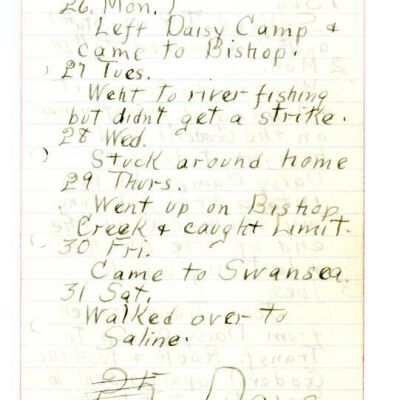 26. Mon.
Left Daisy Camp &
came to Bishop.
27 Tues.
Went to river fishing
but didn't get a strike.
28 Wed.
Stuck around home
29 Thurs.
Went up on Bishop
Creek & caught Limit.
30 Fri.
Came to Swansea.
31 Sat.
Walked over to
Saline.